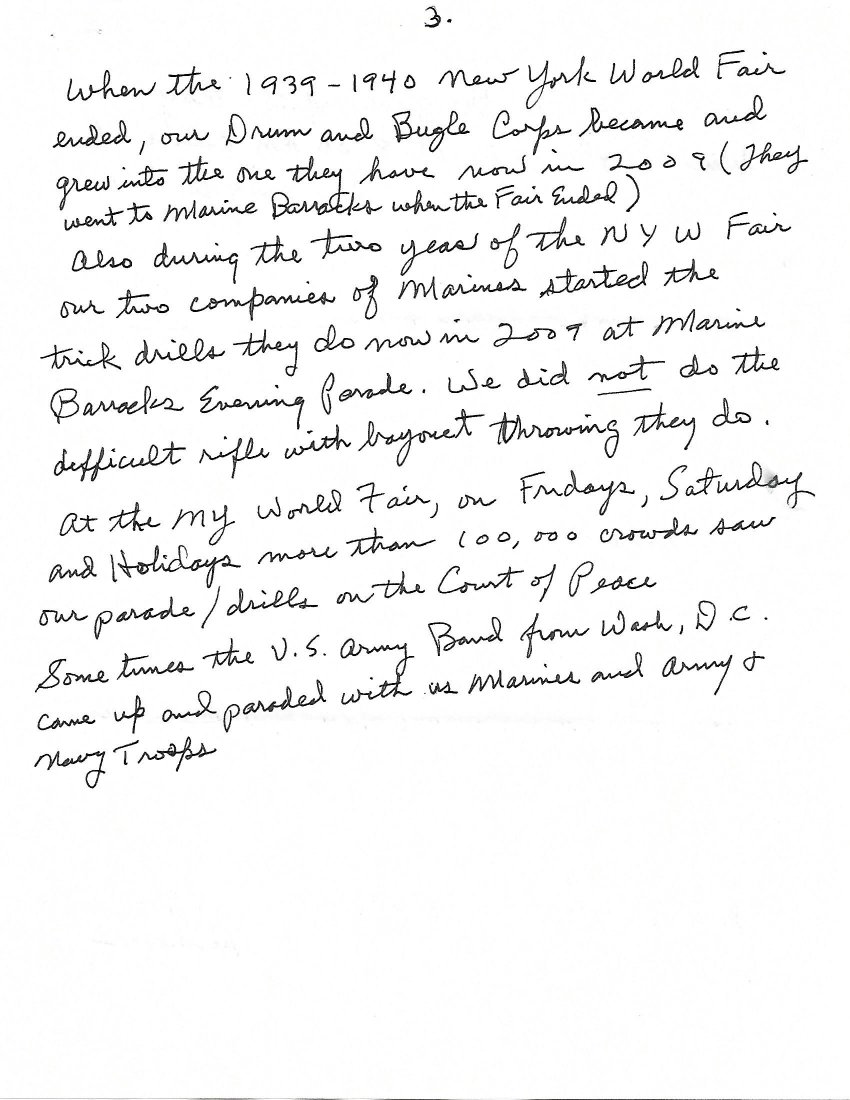 3.
When the 1939-1940 New York World Fair
ended, our Drum and Bugle Corps became and
grew into the one they have now in 2009 (They
went to Marine Barracks when the Fair Ended)
Also during the two years of the NYW Fair
our two companies of Marines started the
trick drills they do now in 2009 at Marine
Barracks Evening Parade. We did not do the
difficult rifle with bayonet throwing they do.
At the NY World Fair, on Fridays, Saturday
and Holidays more than 100,000 crowds saw
our parade/drills on the Court of Peace
Some times the U.S. Army Band from Wash, D.C.
came up and paraded with us Marines and Army &
Navy Troops